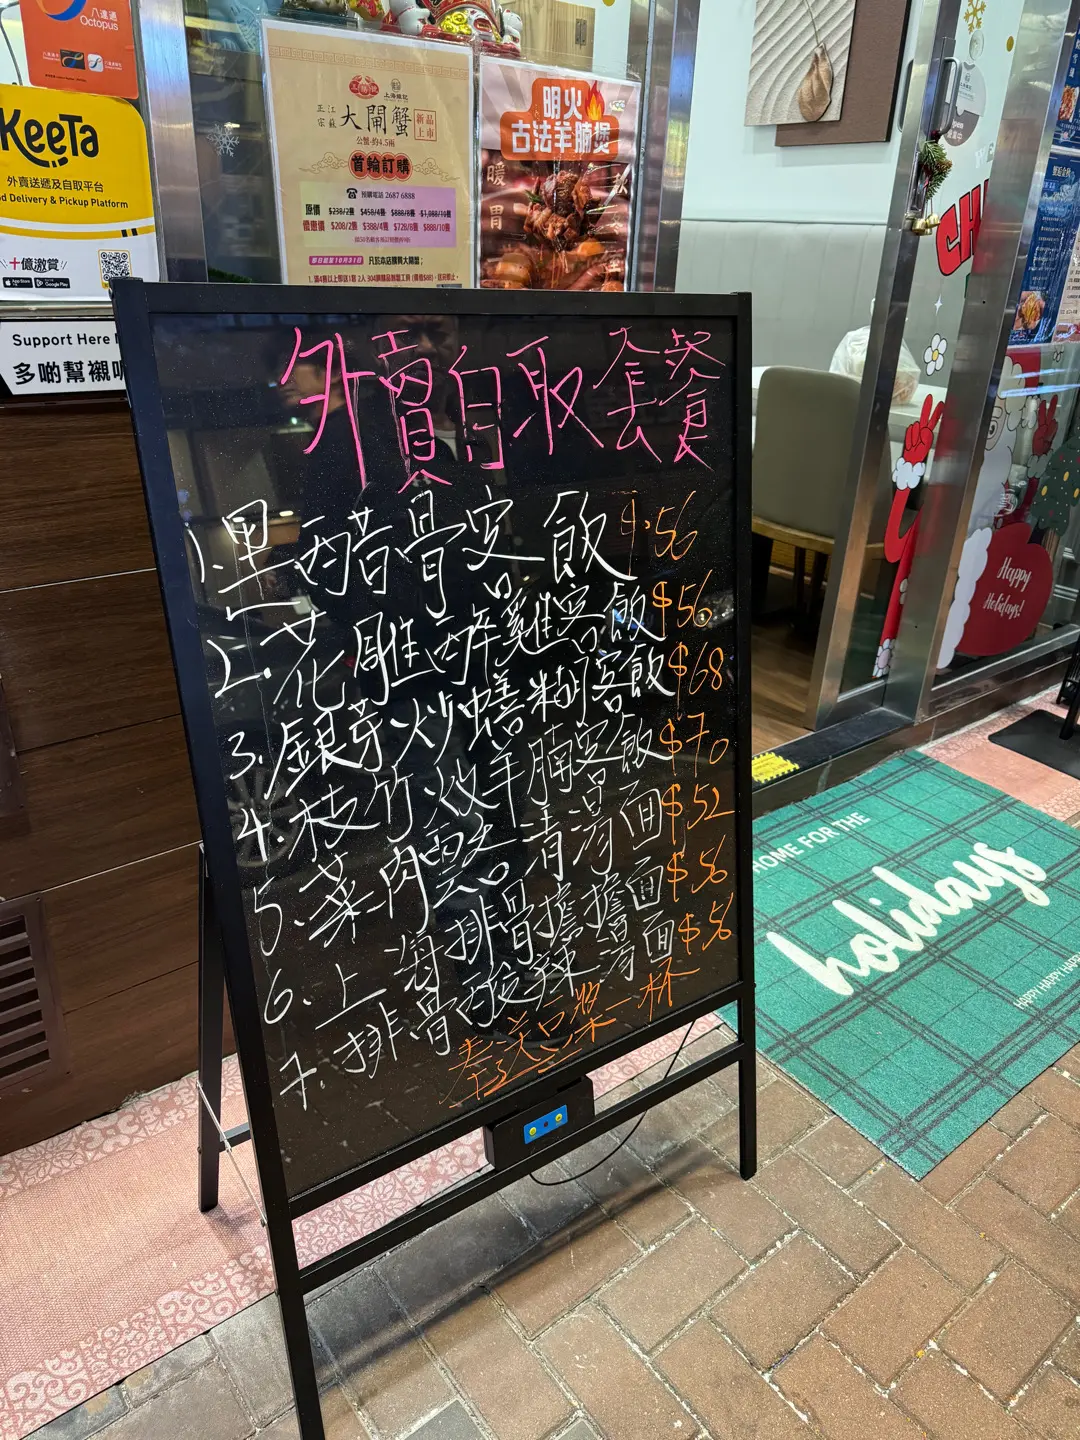 八達通
Octopus
KeeTa
外賣送遞及自取平台
d Delivery & Pickup Platform
十億激賞
App Store
Google Play
Support Here
多啲幫襯
上海雞記
正宗
江蘇
大閘蟹
新品上市
公蟹·約4.5兩
首輪訂購
預購電話 2687 6888
原價 $238/2隻 $458/4隻 $888/8隻 $1,088/10隻
優惠價 $208/2隻 $388/4隻 $728/8隻 $888/10隻
即日起至10月31日
只於本店購買大閘蟹：
明火
古法羊腩煲
暖
胃
外賣自取套餐
1.黑醋骨客飯 $.56
2.花雕醉雞客飯 $56
3.銀芽炒鱔糊客飯 $68
4.枝竹炆羊腩客飯 $70
5.菜肉雲吞清湯面 $52
6.上海排骨擔擔面 $56
7.排骨酸辣湯面 $56
奉送豆漿一杯
Happy
Holidays!
HOME FOR THE
holidays
HAPPY HAPPY HAPP